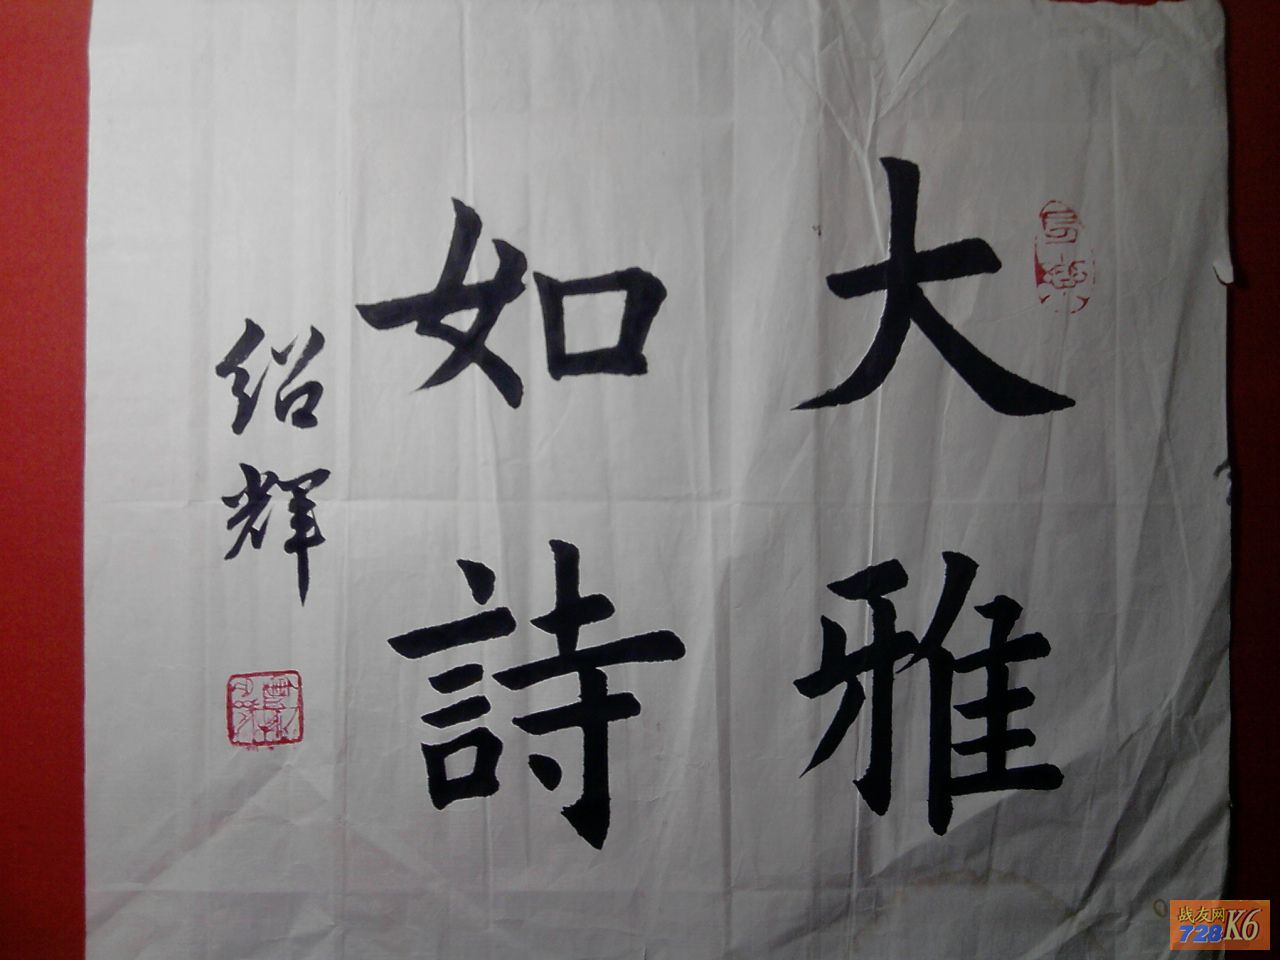 大雅
如詩
绍輝
战友网
728K6